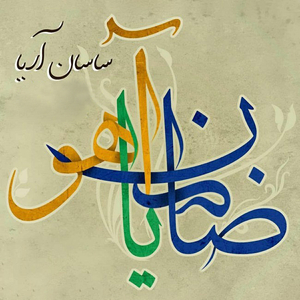 ساسان آریا
یا ضامن آهو